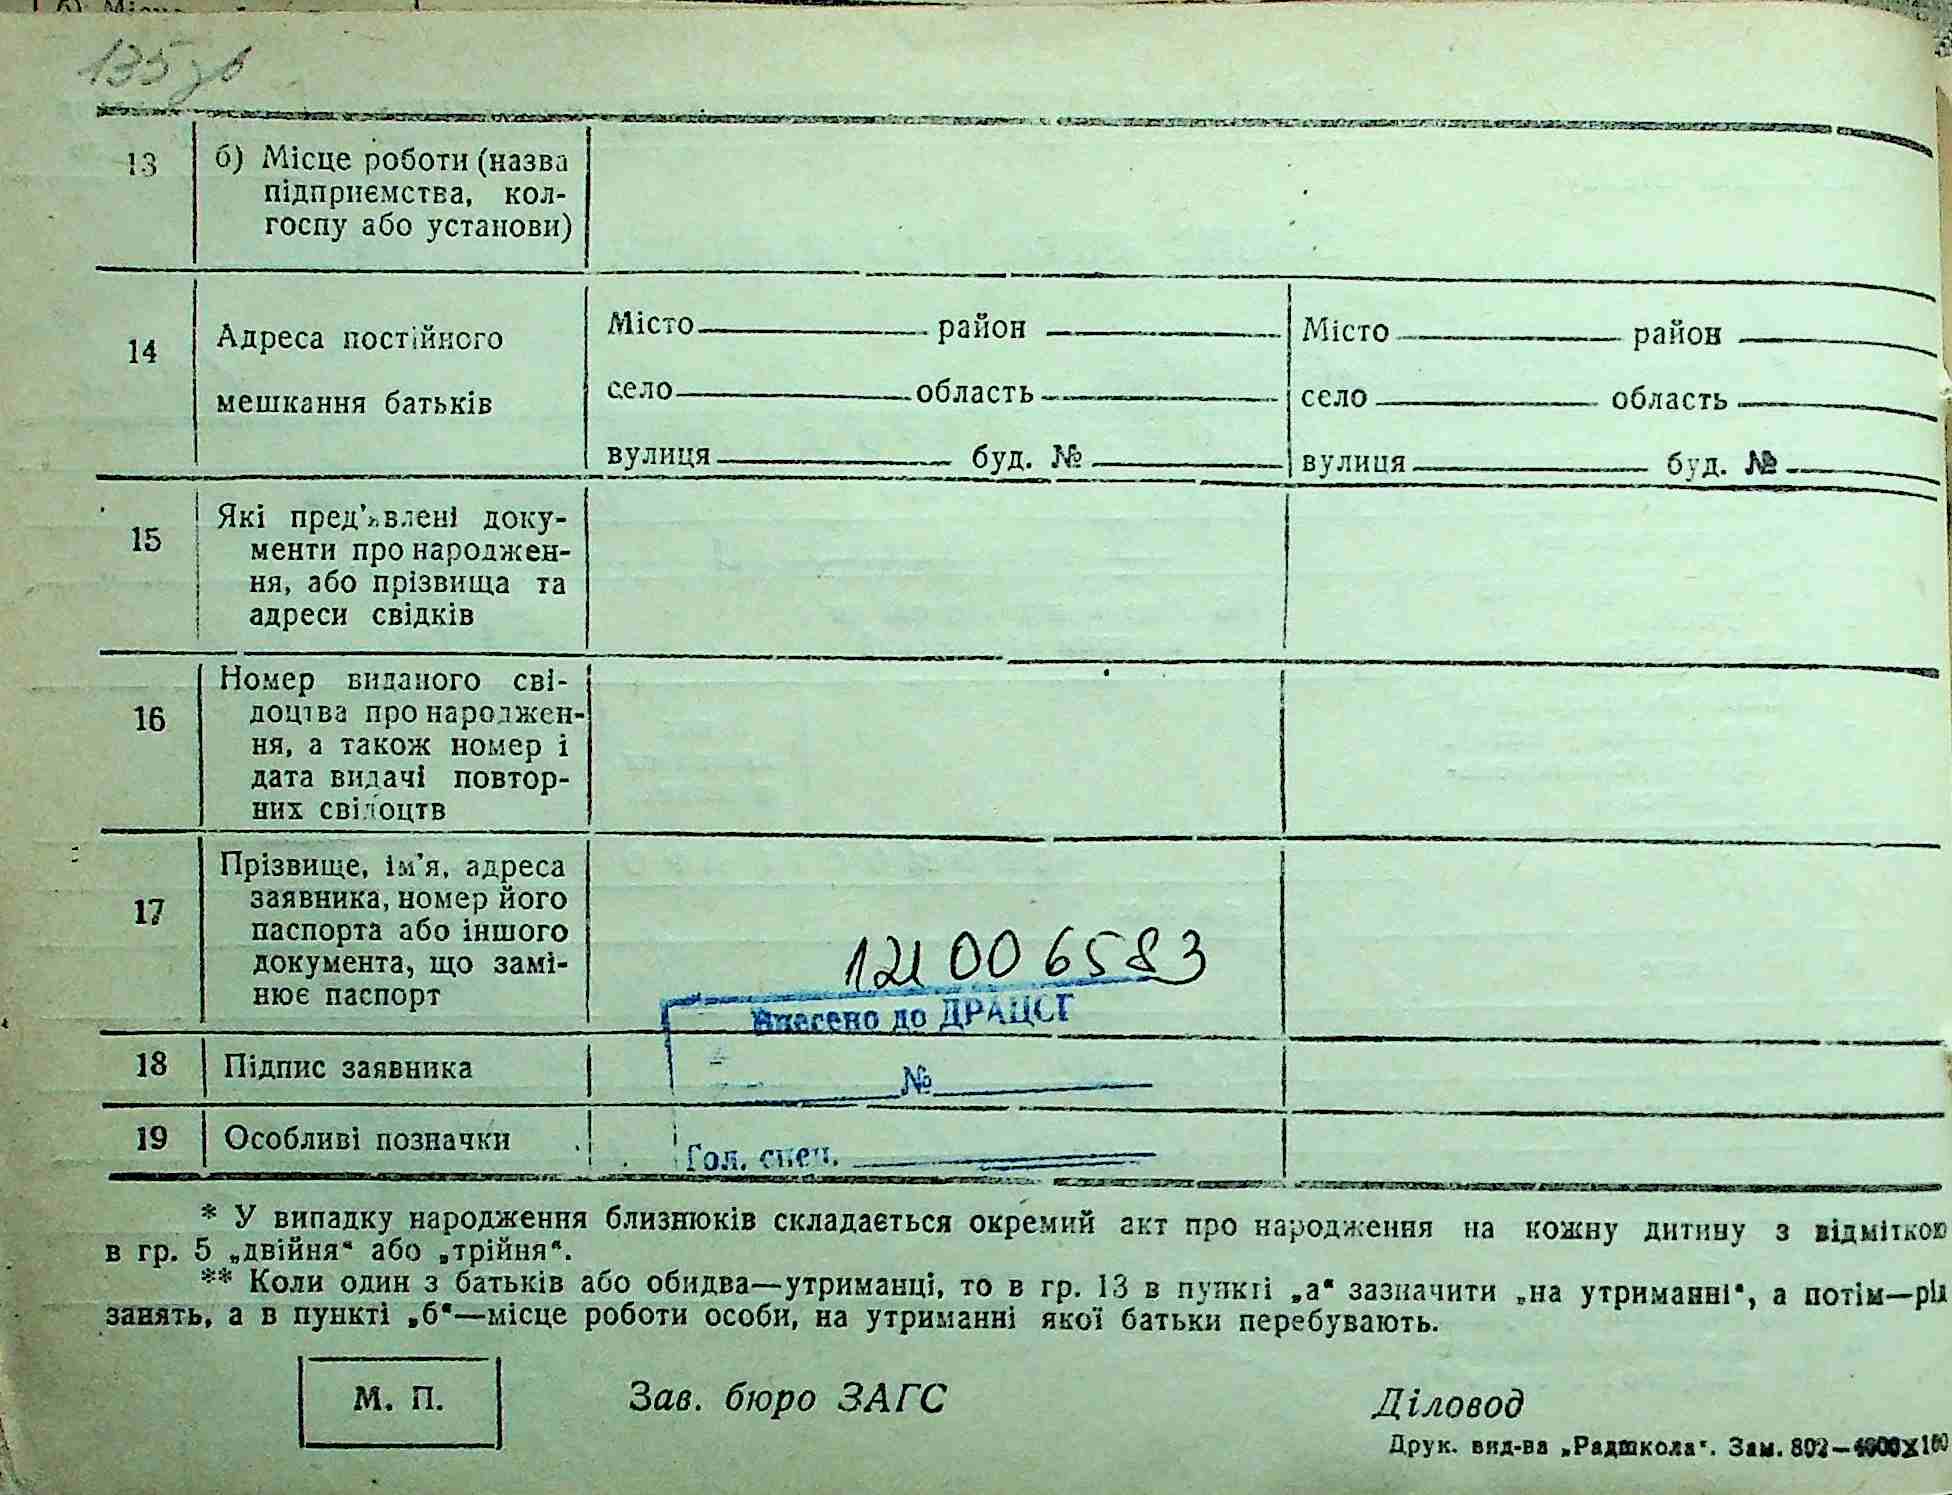 135 зв
13
б) Місце роботи (назва
підприємства, кол-
госпу або установи)
14
Адреса постійного
мешкання батьків
Місто район
село область
вулиця буд. №
Місто район
село область
вулиця буд. №
15
Які пред'явлені доку-
менти про народжен-
ня, або прізвища та
адреси свідків
16
Номер виданого сві-
доцтва про народжен-
ня, а також номер і
дата видачі повтор-
них свідоцтв
17
Прізвище, ім'я, адреса
заявника, номер його
паспорта або іншого
документа, що замі-
нює паспорт
121006583
Внесено до ДРАЦСГ
№
Гол. спец.
18
Підпис заявника
19
Особливі позначки
* У випадку народження близнюків складається окремий акт про народження на кожну дитину з відміткою
в гр. 5 „двійня“ або „трійня“.
** Коли один з батьків або обидва—утриманці, то в гр. 13 в пункті „а“ зазначити „на утриманні“, а потім—рід
занять, а в пункті „б“—місце роботи особи, на утриманні якої батьки перебувають.
М. П.
Зав. бюро ЗАГС
Діловод
Друк. вид-ва „Радшкола“. Зам. 802—4000х100